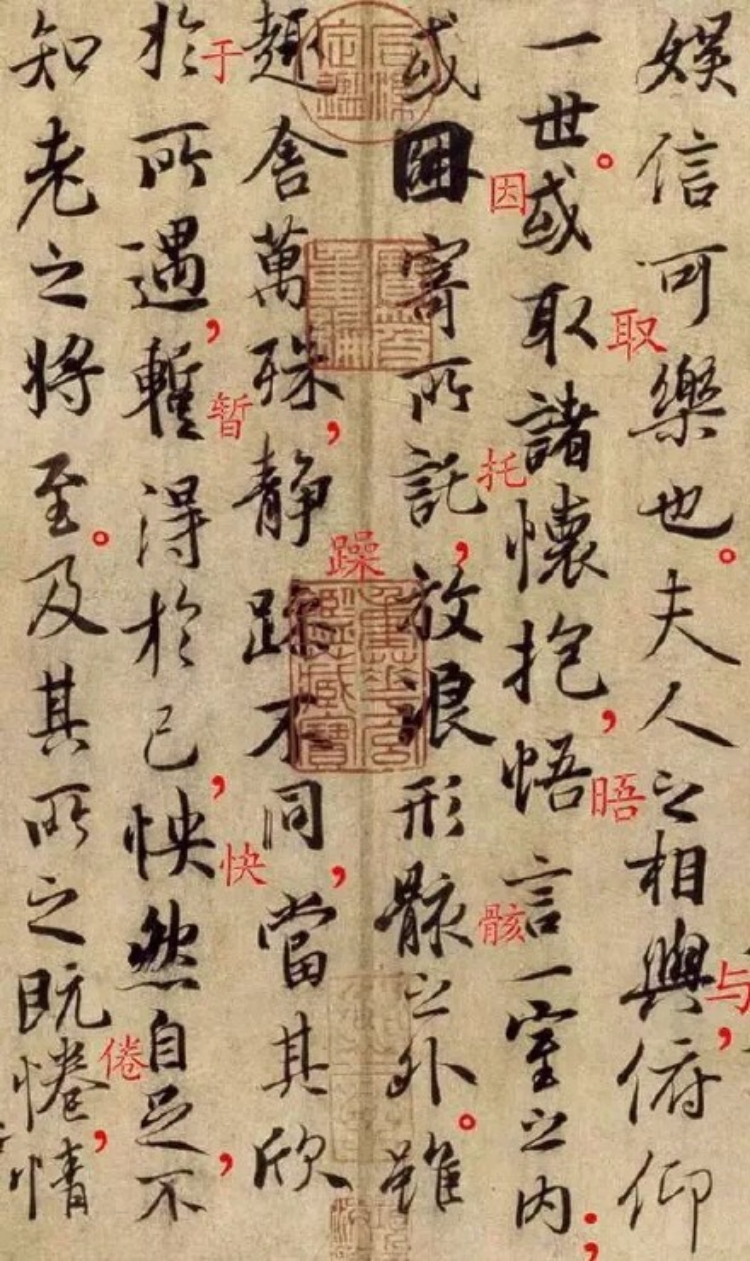 娱信可樂也。夫人之相與，俯仰
与
一世。或取諸懷抱，悟言一室之内；
取
晤
或因寄所託，放浪形骸之外。雖
因
托
骸
趣舍萬殊，静躁不同，當其欣
躁
於所遇，暫得於己，怏然自足，不
于
暂
快
知老之將至。及其所之既惓，情
倦